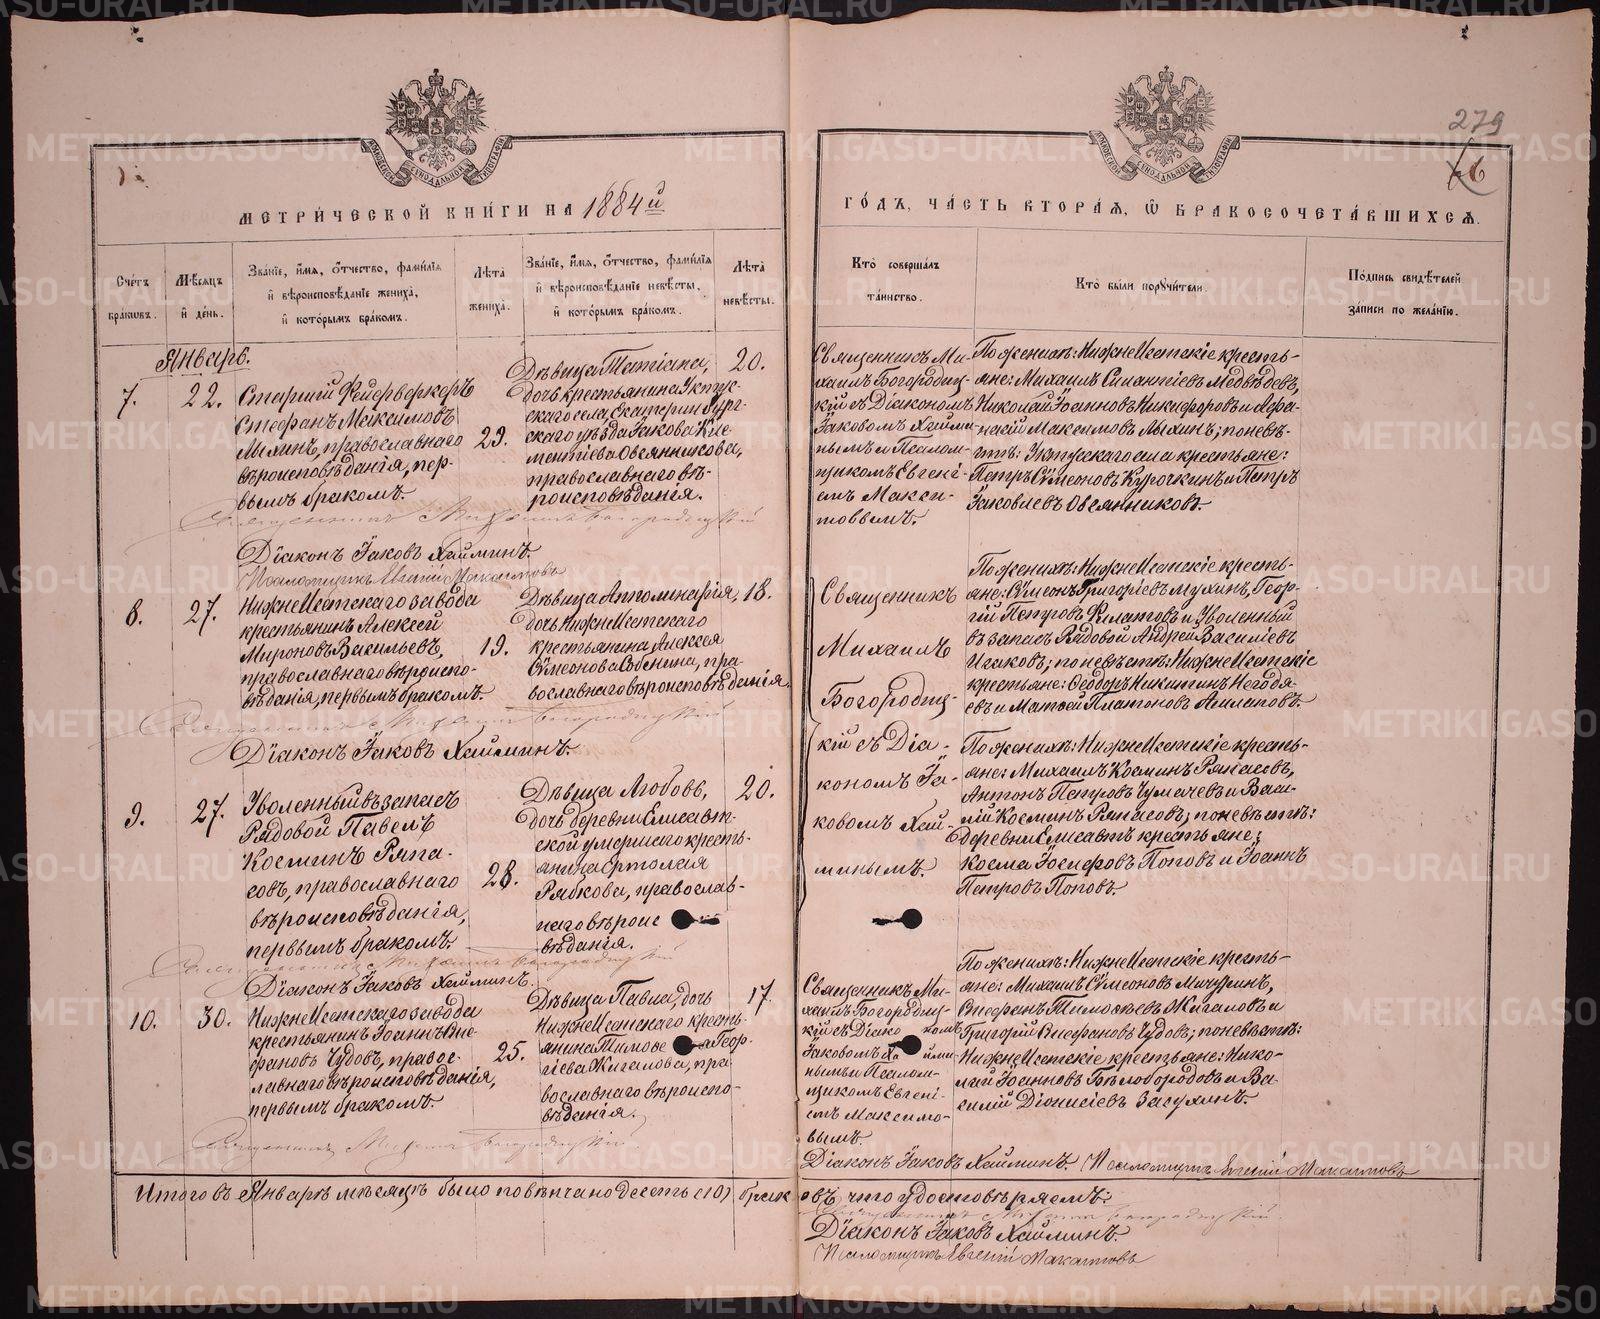 279
6
МЕТРИ́ЧЕСКОЙ КНИ́ГИ НА 1884й
ГО́ДЪ, ЧА́СТЬ ВТОРА́Я, Ѿ БРАКОСОЧЕТА́ВШИХСЯ.
Сче́тъ бра́ковъ.
Мѣ́сяцъ и де́нь.
Зва́нїе, и́мя, о́тчество, фами́лїя и вѣроисповѣ́данїе жениха̀, и кото́рымъ бра́комъ.
Лѣ́та жениха̀.
Зва́нїе, и́мя, о́тчество, фами́лїя и вѣроисповѣ́данїе невѣ́сты, и кото́рымъ бра́комъ.
Лѣ́та невѣ́сты.
Кто̀ соверша́лъ та́инство.
Кто̀ бы́ли поручи́тели.
По́дпись свидѣ́телей за́писи по жела́нїю.
Январь.
7.
22.
Старшій Фейерверкеръ
Стефанъ Максимовъ
Лыхинъ, православнаго
вѣроисповѣданія, пер-
вымъ бракомъ.
29.
Дѣвица Татіана,
дочь крестьянина Уктус-
скаго села, Екатеринбург-
скаго уѣзда Іакова Кле-
ментіева Овсянникова,
православнаго вѣ-
роисповѣданія.
20.
Священникъ Ми-
хаилъ Богородиц-
кій съ Діакономъ
Іаковомъ Хайми-
нымъ и Псалом-
щикомъ Евгені-
емъ Макси-
мовымъ.
По женихѣ: НижнеИсетскіе кресть-
яне: Михаилъ Силантіевъ Медвѣдевъ,
Николай Іоанновъ Никифоровъ и Афа-
насій Максимовъ Лыхинъ; по невѣс-
тѣ: Уктусскаго села крестьяне:
Петръ Сѵмеоновъ Курочкинъ и Петръ
Іаковлевъ Овсянниковъ.
Священникъ Михаилъ Богородицкій
Діаконъ Іаковъ Хайминъ.
Псаломщикъ Евгеній Максимовъ
8.
27.
НижнеИсетскаго завода
крестьянинъ Алексей
Мироновъ Васильевъ,
православнаго вѣроиспо-
вѣданія, первымъ бракомъ.
19.
Дѣвица Апполинарія,
дочь НижнеИсетскаго
крестьянина Алексея
Сѵмеонова Собенина, пра-
вославнаго вѣроисповѣданія.
18.
Священникъ
Михаилъ
Богородиц-
кій съ Діа-
кономъ Іа-
ковомъ Хай-
минымъ.
По женихѣ: НижнеИсетскіе кресть-
яне: Сѵмеонъ Григоріевъ Мухинъ, Геор-
гій Петровъ Филатовъ и Уволенный
въ запасъ Рядовой Андрей Василіевъ
Исаковъ; по невѣстѣ: НижнеИсетскіе
крестьяне: Ѳеодоръ Никитинъ Негодя-
евъ и Матѳей Платоновъ
Священникъ Михаилъ Богородицкій
Діаконъ Іаковъ Хайминъ.
9.
27.
Уволенный въ запасъ
Рядовой Павелъ
Косминъ Ряпа-
совъ, православнаго
вѣроисповѣданія,
первымъ бракомъ.
28.
Дѣвица Любовь,
дочь деревни Елисавет-
ской умершаго кресть-
янина Ермолая
Рябкова, православ-
наго вѣроис-
вѣданія.
20.
По женихѣ: НижнеИсетскіе кресть-
яне: Михаилъ Косминъ Ряпасовъ,
Антонъ Петровъ Чумачевъ и Васи-
лій Косминъ Ряпасовъ; по невѣстѣ:
деревни Елисаветъ крестьяне:
Косма Іосифовъ Поповъ и Іоаннъ
Петровъ Поповъ.
Священникъ Михаилъ Богородицкій
Діаконъ Іаковъ Хайминъ.
10.
30.
НижнеИсетскаго завода
крестьянинъ Іоаннъ Сте-
фановъ Чудовъ, правос-
лавнаго вѣроисповѣданія,
первымъ бракомъ.
25.
Дѣвица Павла, дочь
НижнеИсетскаго кресть-
янина Тимоѳея Геор-
гіева Жигалова, пра-
вославнаго вѣроиспо-
вѣданія.
17.
Священникъ Ми-
хаилъ Богородиц-
кій съ Діакономъ
Іаковомъ Хайми-
нымъ и Псалом-
щикомъ Евгені-
емъ Максимо-
вымъ.
По женихѣ: НижнеИсетскіе кресть-
яне: Михаилъ Сѵмеоновъ
Стефанъ Тимоѳеевъ Жигаловъ и
Григорій Стефановъ Чудовъ; по невѣстѣ:
НижнеИсетскіе крестьяне: Нико-
лай Іоанновъ Бѣлобородовъ и Ва-
силій Діонисіевъ Засухинъ.
Священникъ Михаилъ Богородицкій
Діаконъ Іаковъ Хайминъ. Псаломщикъ Евгеній Максимовъ
Итого въ Январѣ мѣсяцѣ было повѣнчано десять (10) браковъ что удостовѣряемъ:
Священникъ Михаилъ Богородицкій
Діаконъ Іаковъ Хайминъ.
Псаломщикъ Евгеній Максимовъ
METRIKI.GASO-URAL.RU